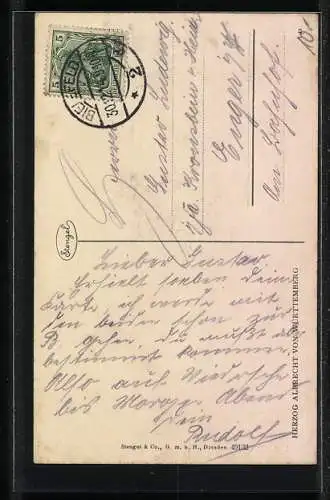 10.-
5
5
BIELEFELD
* 2
Herrn
Gustav Ludewig.
Enger i/W
Am Bahnhof.
Stengel
Lieber Gustav
Erhielt soeben Deine
Karte, ich werde mit
den beiden schon zur
B gehen, du mußt aber
bestimmt kommen.
Also auf Wiedersehn
bis Morgen Abend
Dein
Rudolf
Stengel & Co., G. m. b. H., Dresden
HERZOG ALBRECHT VON WÜRTTEMBERG